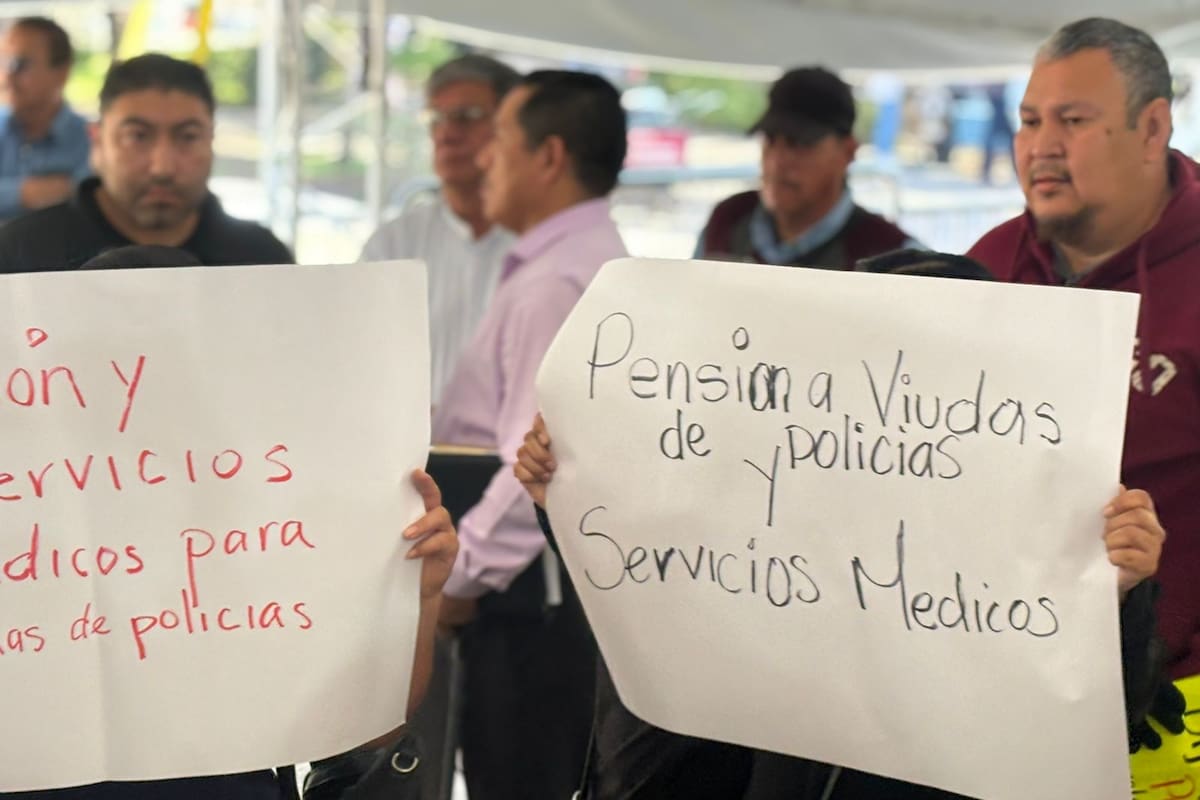 ón y
ervicios
dicos para
as de policias
Pension a Viudas
de policias
y
Servicios Medicos